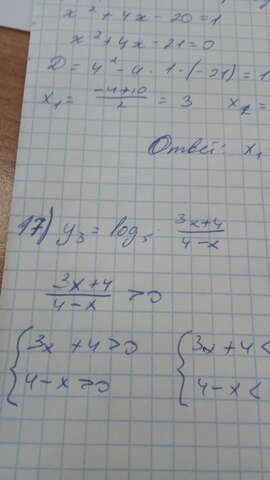 x² + 4x - 20 = 1
x² + 4x - 21 = 0
D = 4² - 4 · 1 · (-21) = 1
x₁ = (-4+10)/2 = 3 x₂ =
Ответ: x₁
17) y₃ = log₅ (3x+4)/(4-x)
(3x+4)/(4-x) > 0
{ 3x + 4 > 0 { 3x + 4 <
{ 4 - x > 0 { 4 - x <